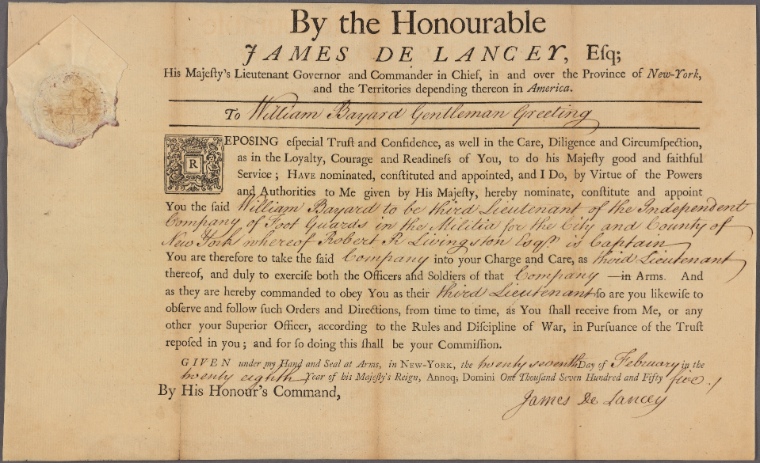 By the Honourable
JAMES DE LANCEY, Eſq;
His Majeſty's Lieutenant Governor and Commander in Chief, in and over the Province of New-York,
and the Territories depending thereon in America.
To William Bayard Gentleman Greeting
REPOSING eſpecial Truſt and Confidence, as well in the Care, Diligence and Circumſpection,
as in the Loyalty, Courage and Readineſs of You, to do his Majeſty good and faithful
Service; HAVE nominated, conſtituted and appointed, and I DO, by Virtue of the Powers
and Authorities to Me given by His Majeſty, hereby nominate, conſtitute and appoint
You the ſaid William Bayard to be third Lieutenant of the Independent
Company of Foot Guards in the Militia for the City and County of
New York whereof Robert R Livingston Esqr. is Captain
You are therefore to take the ſaid Company into your Charge and Care, as third Lieutenant
thereof, and duly to exerciſe both the Officers and Soldiers of that Company —in Arms. And
as they are hereby commanded to obey You as their third Lieutenant ſo are you likewiſe to
obſerve and follow ſuch Orders and Directions, from time to time, as You ſhall receive from Me, or any
other your Superior Officer, according to the Rules and Diſcipline of War, in Purſuance of the Truſt
repoſed in you; and for ſo doing this ſhall be your Commiſſion.
GIVEN under my Hand and Seal at Arms, in NEW-YORK, the twenty seventh Day of February in the
twenty eighth Year of his Majeſty's Reign, Annoq; Domini One Thouſand Seven Hundred and Fifty five./
By His Honour's Command,
James De Lancey